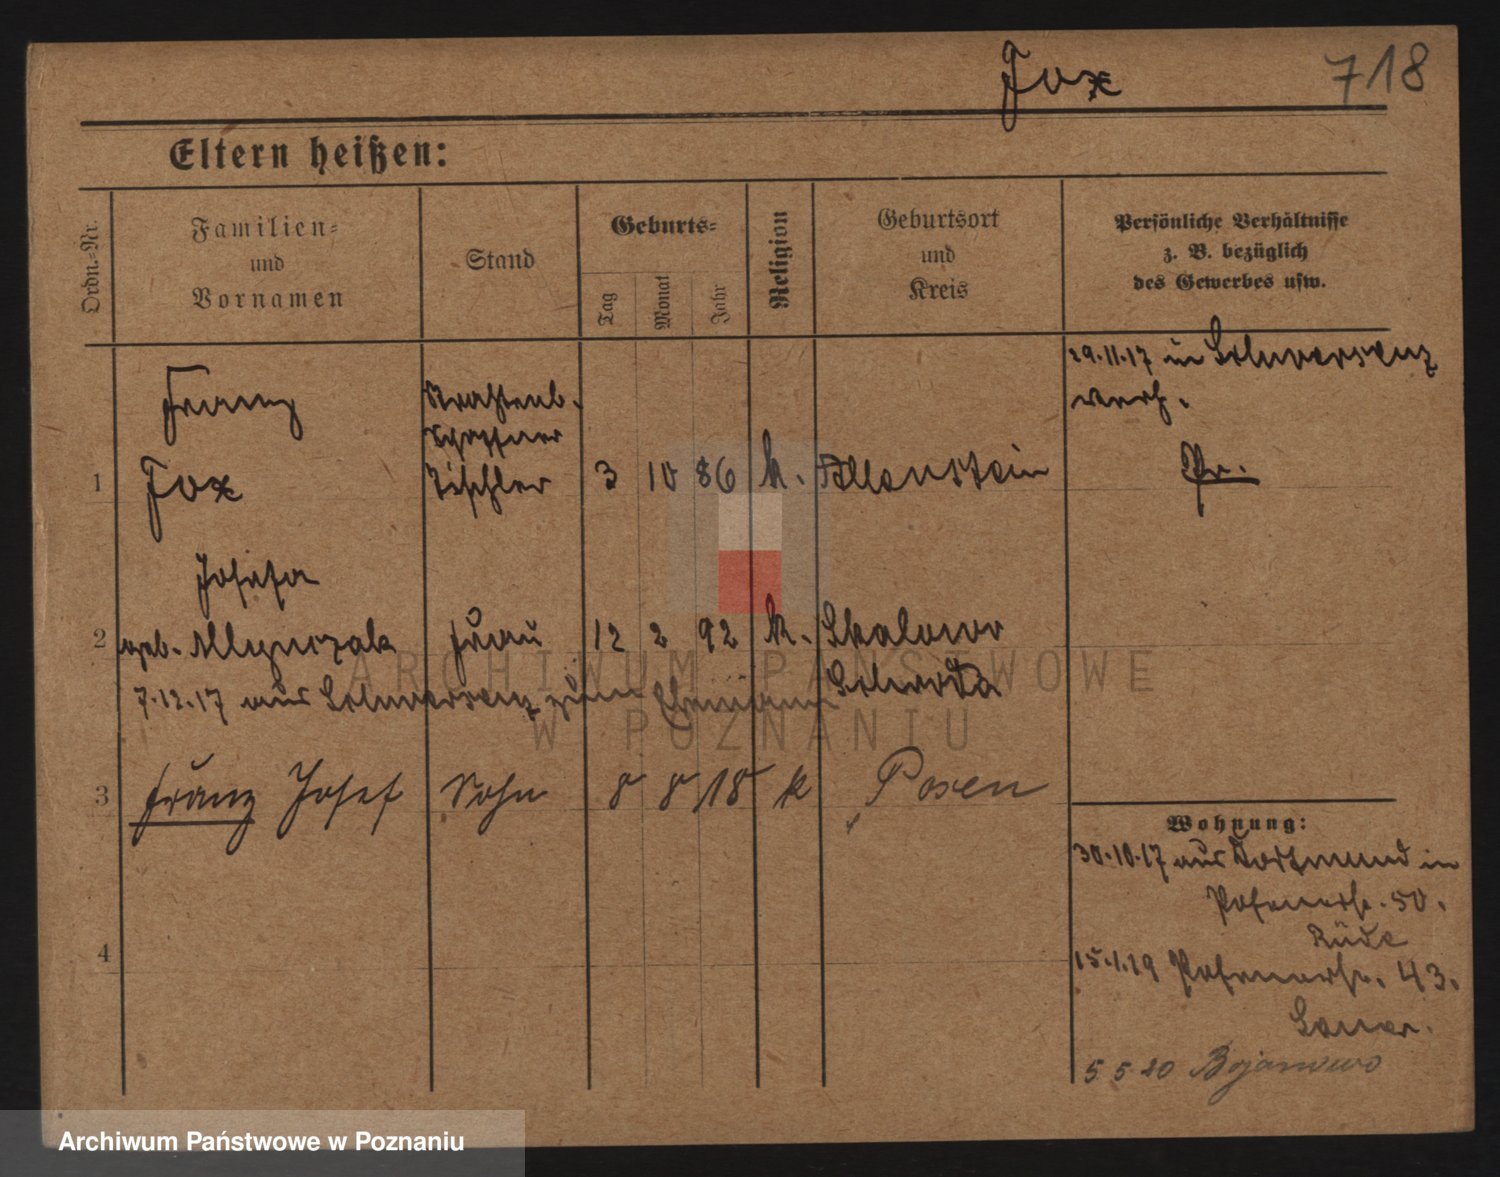 Fox 718
Eltern heißen:
Ordn.=Nr.
Familien=
und
Vornamen
Stand
Geburts=
Tag
Monat
Jahr
Religion
Geburtsort
und
Kreis
Persönliche Verhältnisse
z. B. bezüglich
des Gewerbes usw.
29.11.17 in Schwersenz
verh.
Pr.
Franz
Straßenb.
Schaffner
1 Fox Tischler 3 10 86 k. Allenstein
Josefa
2 geb. Mlynczak Frau 12 2 92 k. Skalowo
7.12.17 aus Schwersenz zum Ehemann Schroda
3 Franz Josef Sohn 8 8 18 k Posen
4
Wohnung:
30.10.17 aus Dortmund in
Posenerstr. 50.
Rüde
15.1.19 Posenerstr. 43.
5 5 20 Bojanowo
ARCHIWUM PAŃSTWOWE
W POZNANIU
Archiwum Państwowe w Poznaniu